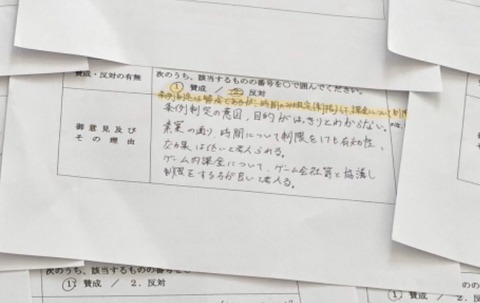 賛成・反対の有無
次のうち、該当するものの番号を○で囲んでください。
① 賛成 / 反対
条例制定は賛成であるが、時間のみ規定(制限)して、課金について制限
条例制定の意図、目的がはっきりとわからない。
御意見及び
その理由
素案の通り、時間について制限をしても有効性、
な効果は低いと考えられる。
ゲーム内課金について、ゲーム会社等と協議し
制限をする方が良いと考える。
次のうち、該当するものの番号を○
① 賛成 / 2. 反対